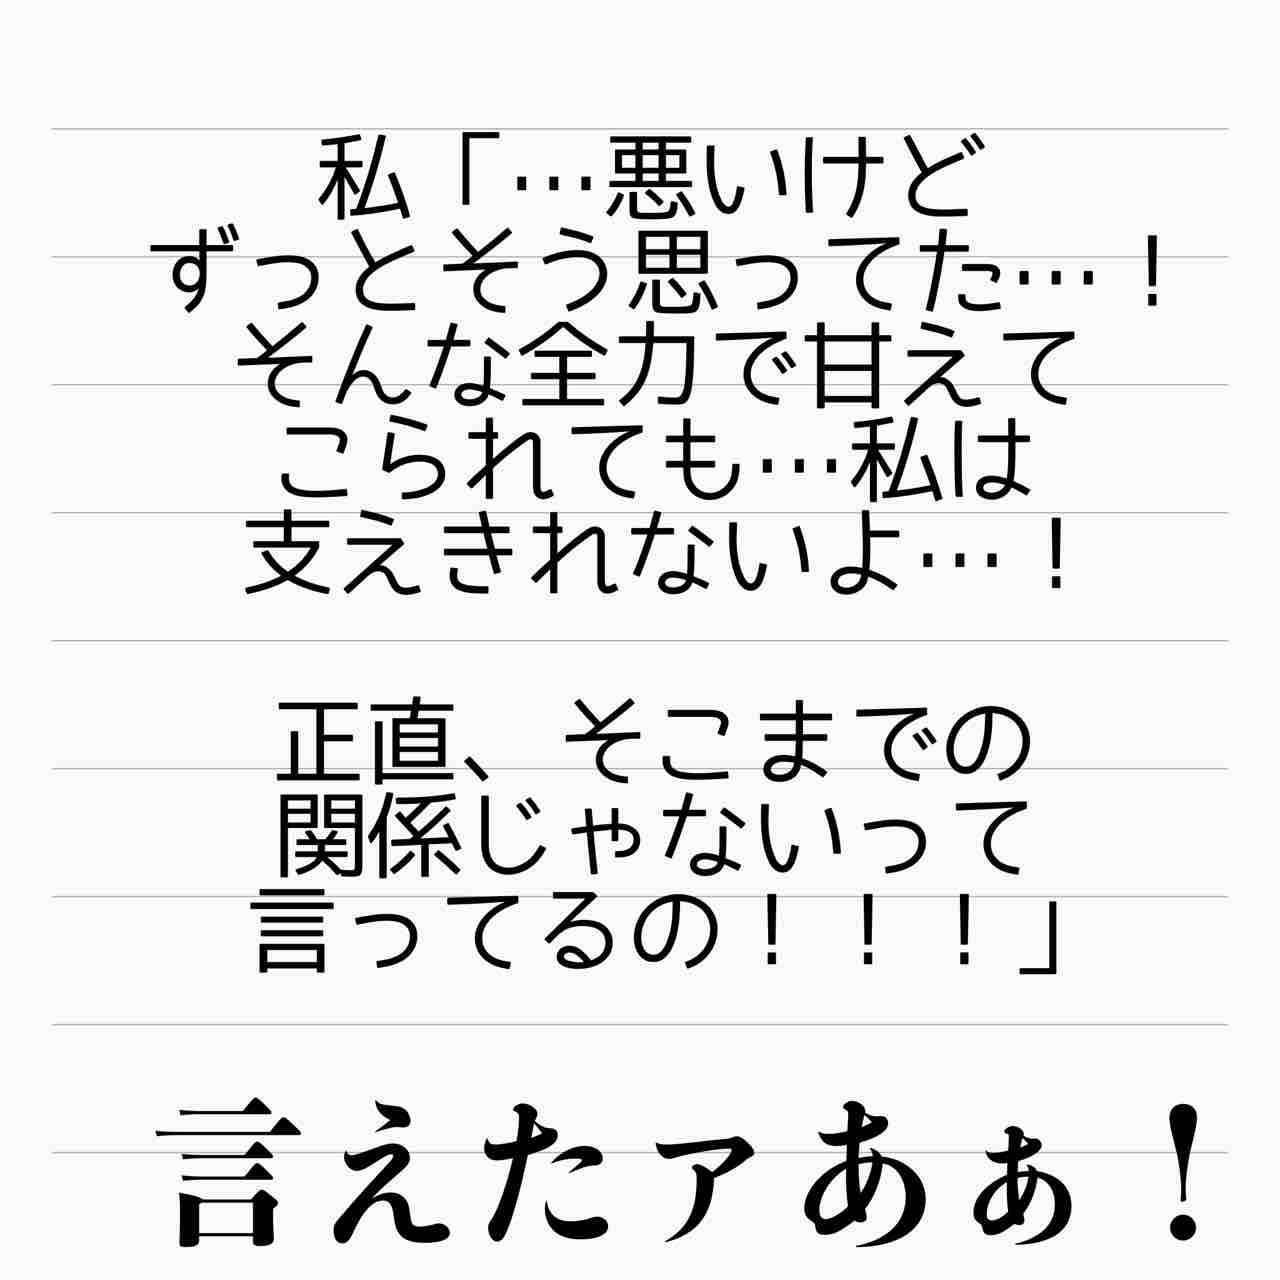 私「…悪いけど
ずっとそう思ってた…！
そんな全力で甘えて
こられても…私は
支えきれないよ…！
正直、そこまでの
関係じゃないって
言ってるの！！！」
言えたァあぁ！